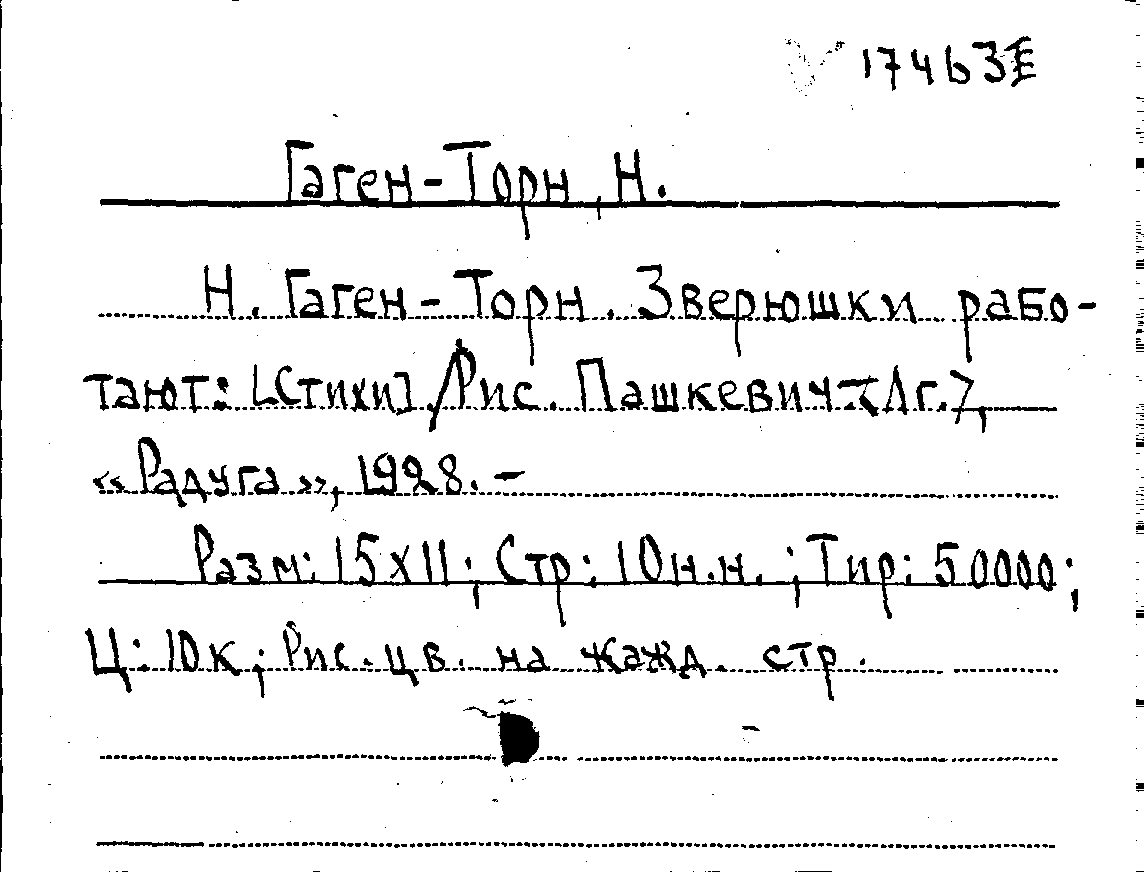 17463Е
Гаген-Торн, Н.
Н. Гаген-Торн. Зверюшки рабо-
тают: [Стихи]./Рис. Пашкевич-<Лг.>,
«Радуга», 1928. -
Разм: 15х11; Стр: 10н.н.; Тир: 50000;
Ц: 10к; Рис. цв. на кажд. стр.